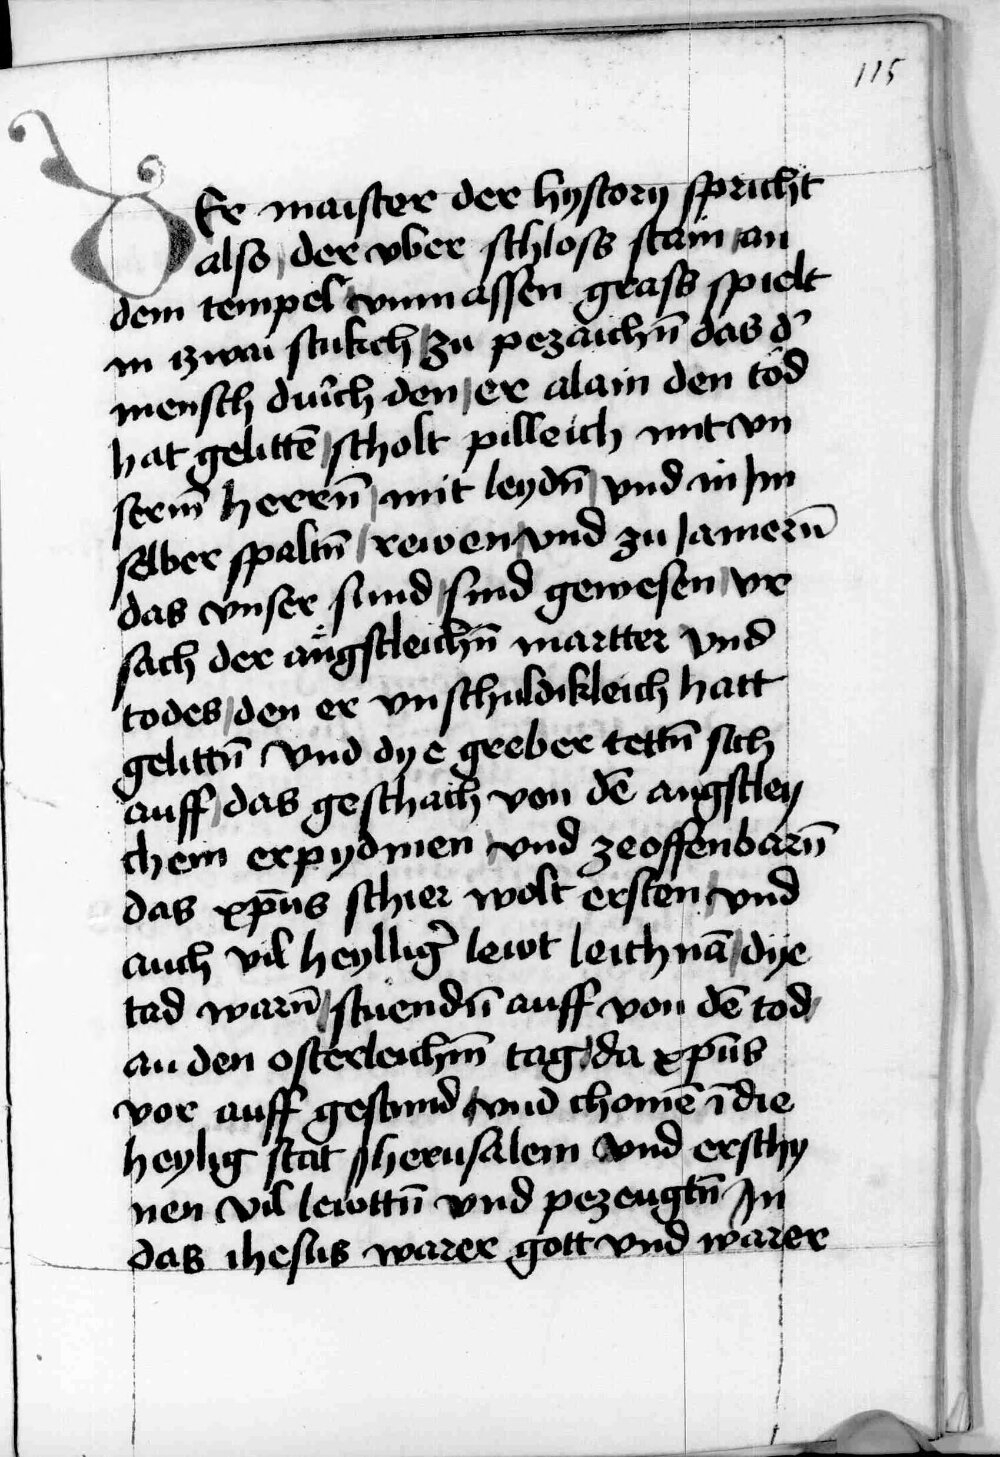 115
DEr maister der hystory spricht
also / der vber schloss stain / an
dem tempel vnmassen grass spielt
in zwai stukch / zu pezaichn̄ das d'
mensch durch den / er alain den tôd
hat gelittē / scholt pilleich mit vn
serm̄ herrn̄ / mit leydn̄ / vnd in Jm
selber spaltn̄ / rewen / vnd zu Jamerñ
das vnser sund / sind gewesen / vr
sach der ängstleichn̄ martter vnd
todes / den er vnschuldikleich hatt
gelittn̄ Vnd dye greber tettn̄ sich
auff / das geschach von dē angstley
chem erpydmen / vnd zeoffenbarn̄
das xp̄us schier wolt ersten / vnd
auch vil heyllig' lewt leichnā / dye
tad warn̄ / stuendn̄ auff von dē tod /
an den osterleichm̄ tag / da xp̄us
vor auff gestund / vnd chomē ī die
heylig stat Jherusalem Vnd erschy
nen vil lewttn̄ vnd pezeugtn̄ Jn
das ihesus warer gott vnd warer